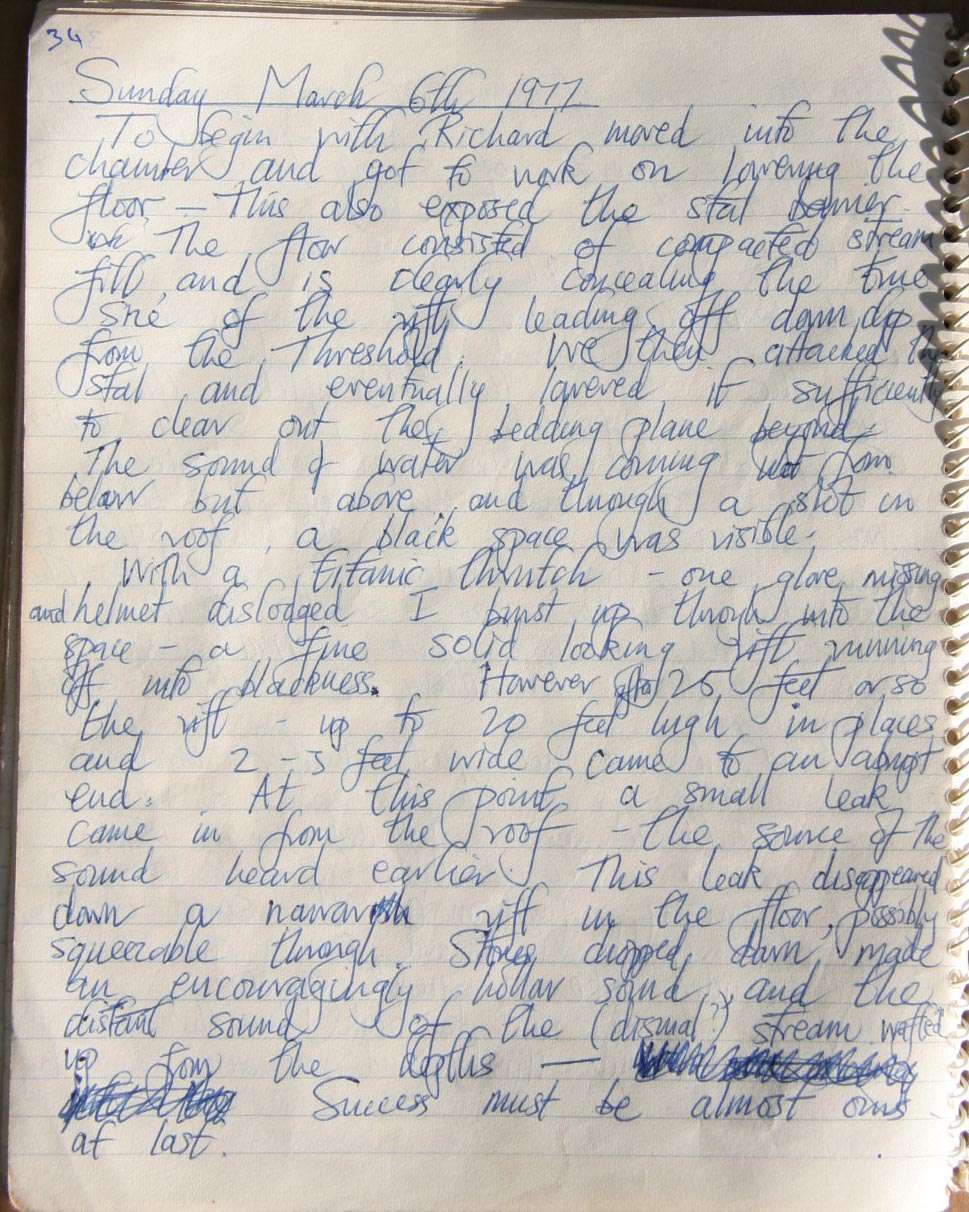 34
Sunday March 6th 1977
To begin with Richard moved into the
chamber and got to work on lowering the
floor, — This also exposed the stal barrier
The floor consisted of compacted stream
fill, and is clearly concealing the true
size of the rift leading off down dip
from the Threshold. We then attacked the
stal and eventually lowered it sufficiently
to clear out the bedding plane beyond.
The sound of water was coming not from
below but above, and through a slot in
the roof, a black space was visible.
With a titanic thrutch - one glove missing
and helmet dislodged I burst up through into the
space - a fine solid looking rift running
off into blackness. However after 25 feet or so
the rift - up to 20 feet high in places
and 2 - 3 feet wide came to an abrupt
end. At this point a small leak
came in from the roof - the source of the
sound heard earlier. This leak disappeared
down a narrowish rift in the floor, possibly
squeezable through. Stones dropped down made
an encouragingly hollow sound, and the
distant sound of the (dismal?) stream wafted
up from the depths —
Success must be almost ours
at last.